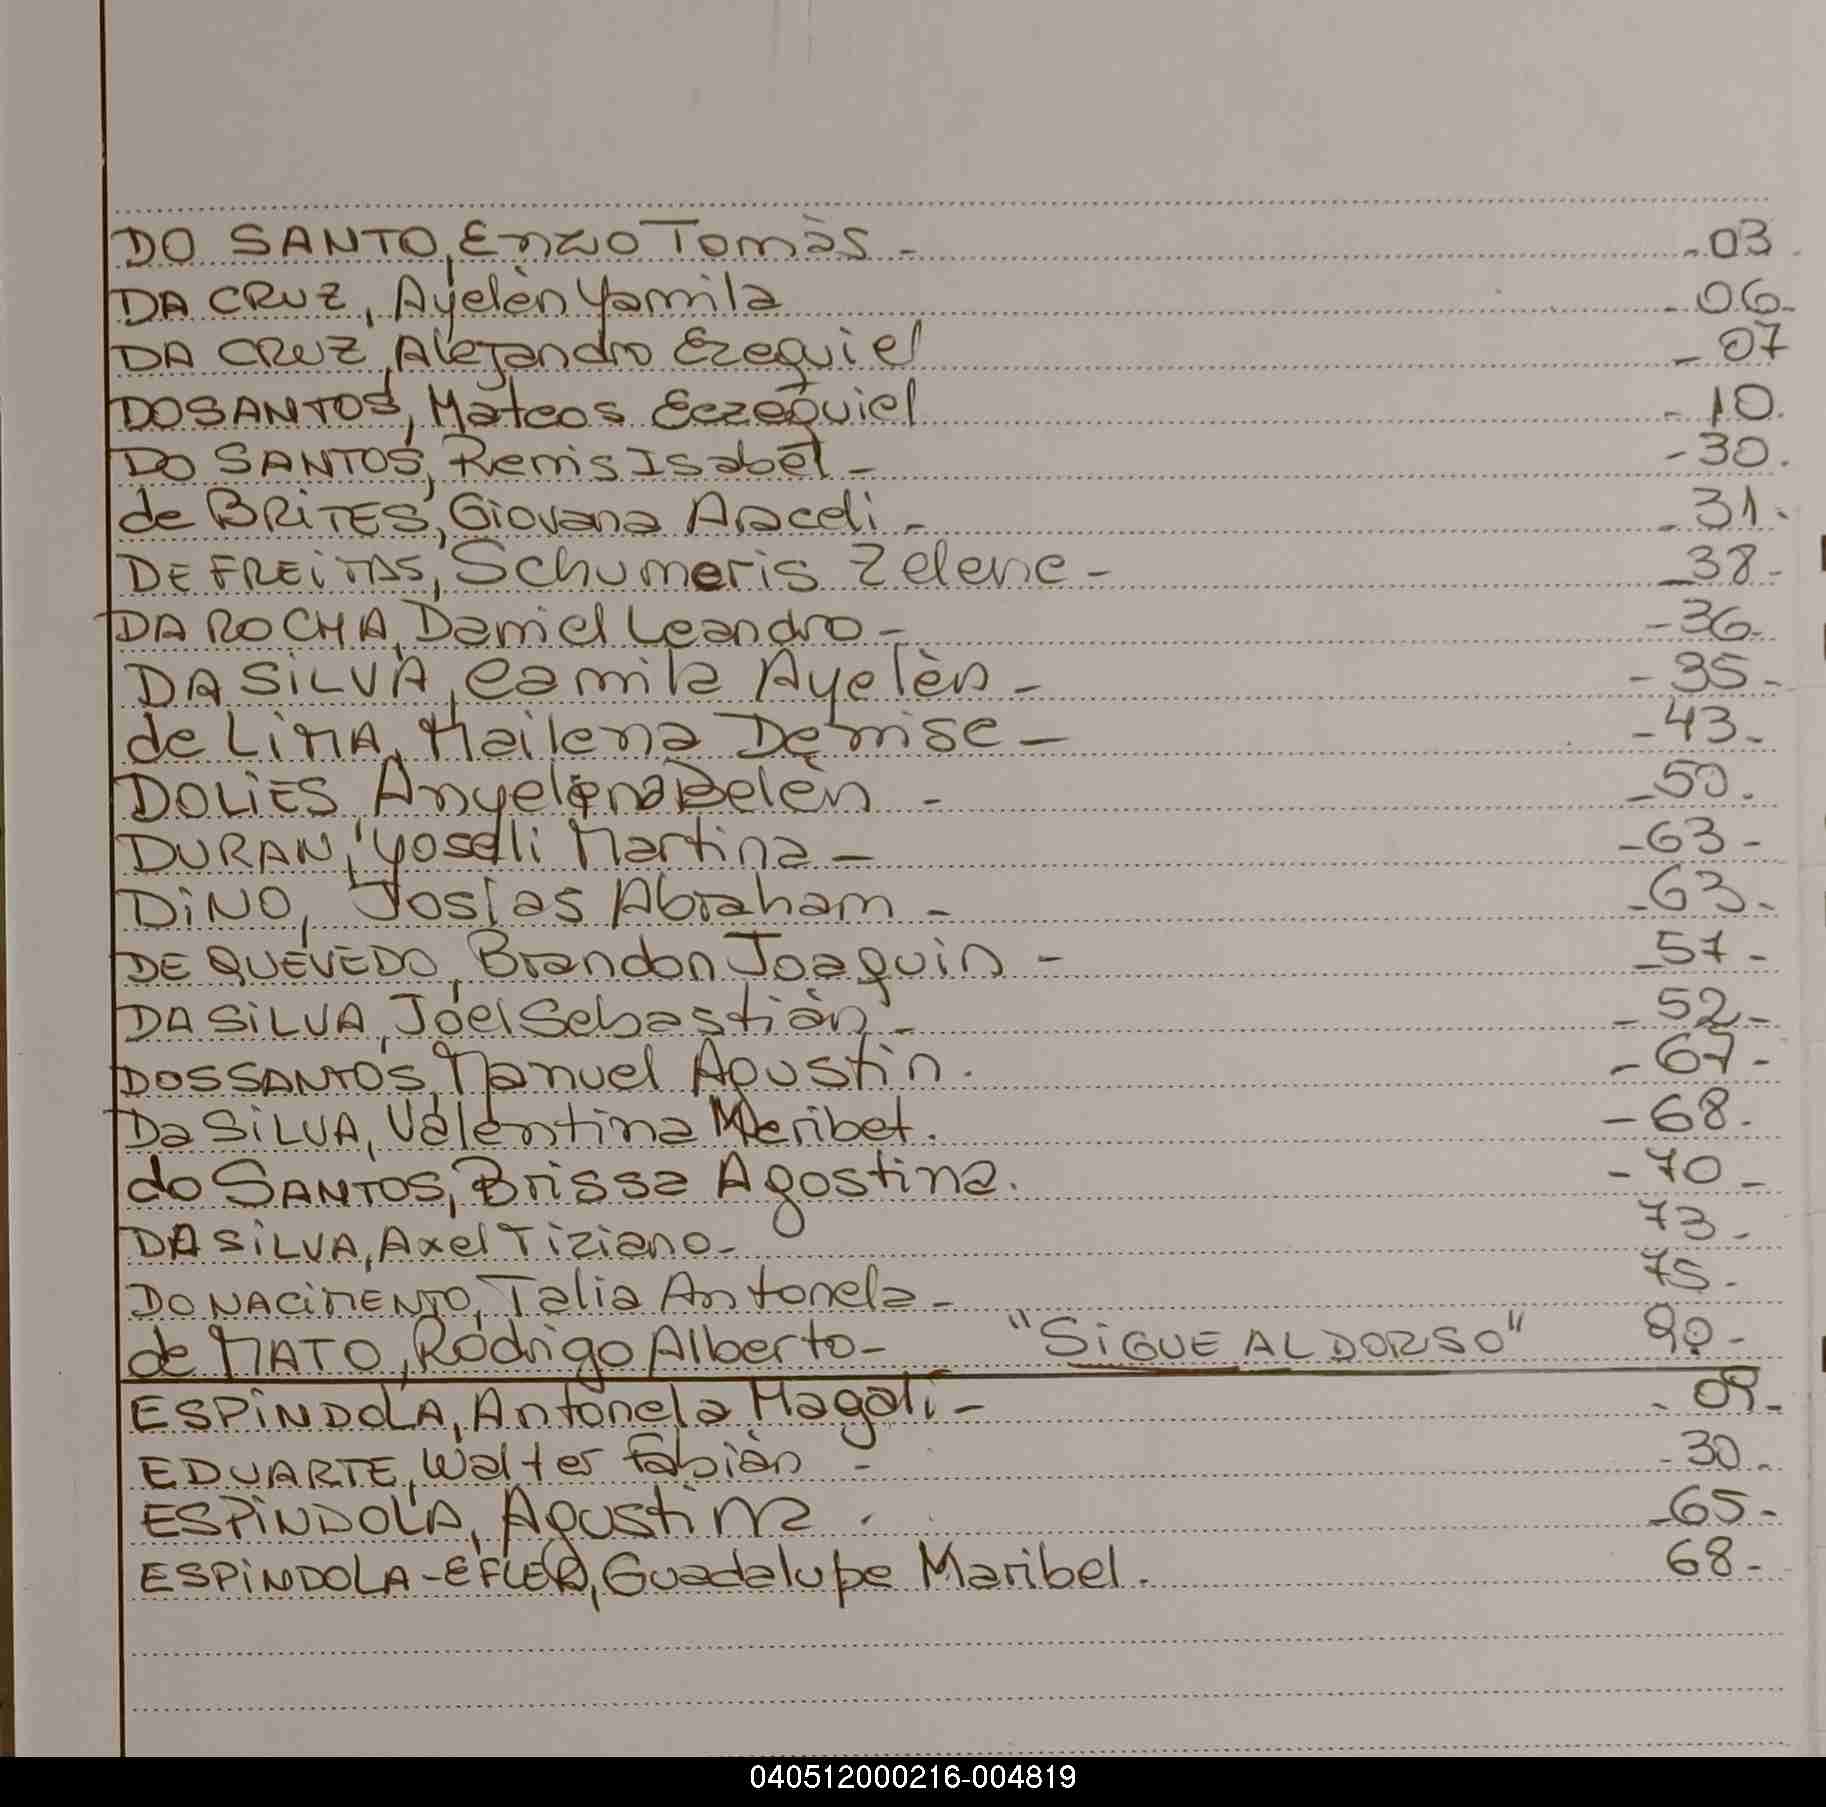 DO SANTO, Enzo Tomàs - - 03 -
DA CRUZ, Ayelèn Yamila - 06 -
DA CRUZ, Alejandro Ezequiel - 07
DOSANTOS, Mateos Eczequiel - 10.
DO SANTOS, Renis Isabel - - 30.
de BRITES, Giovana Araceli - - 31.
DE FREITAS, Schumeris Zelene - - 38 -
DA ROCHA, Daniel Leandro - - 36 -
DA SILVA, Camila Ayelèn - - 35 -
de LIMA, Mailena Denise - - 43 -
DOLIES, Anyelena Belèn - - 50.
DURAN, Yoselli Martina - - 63 -
DINO, Josías Abraham - - 63 -
DE QUEVEDO, Brandon Joaquin - - 57 -
DA SILVA, Joel Sebastiàn - - 52 -
DOSSANTOS, Manuel Agustin. - 67 -
Da SILVA, Valentina Meribet. - 68.
do SANTOS, Brissa Agostina. - 70 -
DA SILVA, Axel Tiziano - 73 -
DO NACIMENTO, Talia Antonela - 75 -
de MATO, Rodrigo Alberto - "SIGUE AL DORSO" 90 -
ESPINDOLA, Antonela Magali - - 09 -
EDUARTE, Walter Fabiàn - - 30 -
ESPINDOLA, Agustina . - 65 -
ESPINDOLA - EFLER, Guadalupe Maribel. 68 -
040512000216-004819